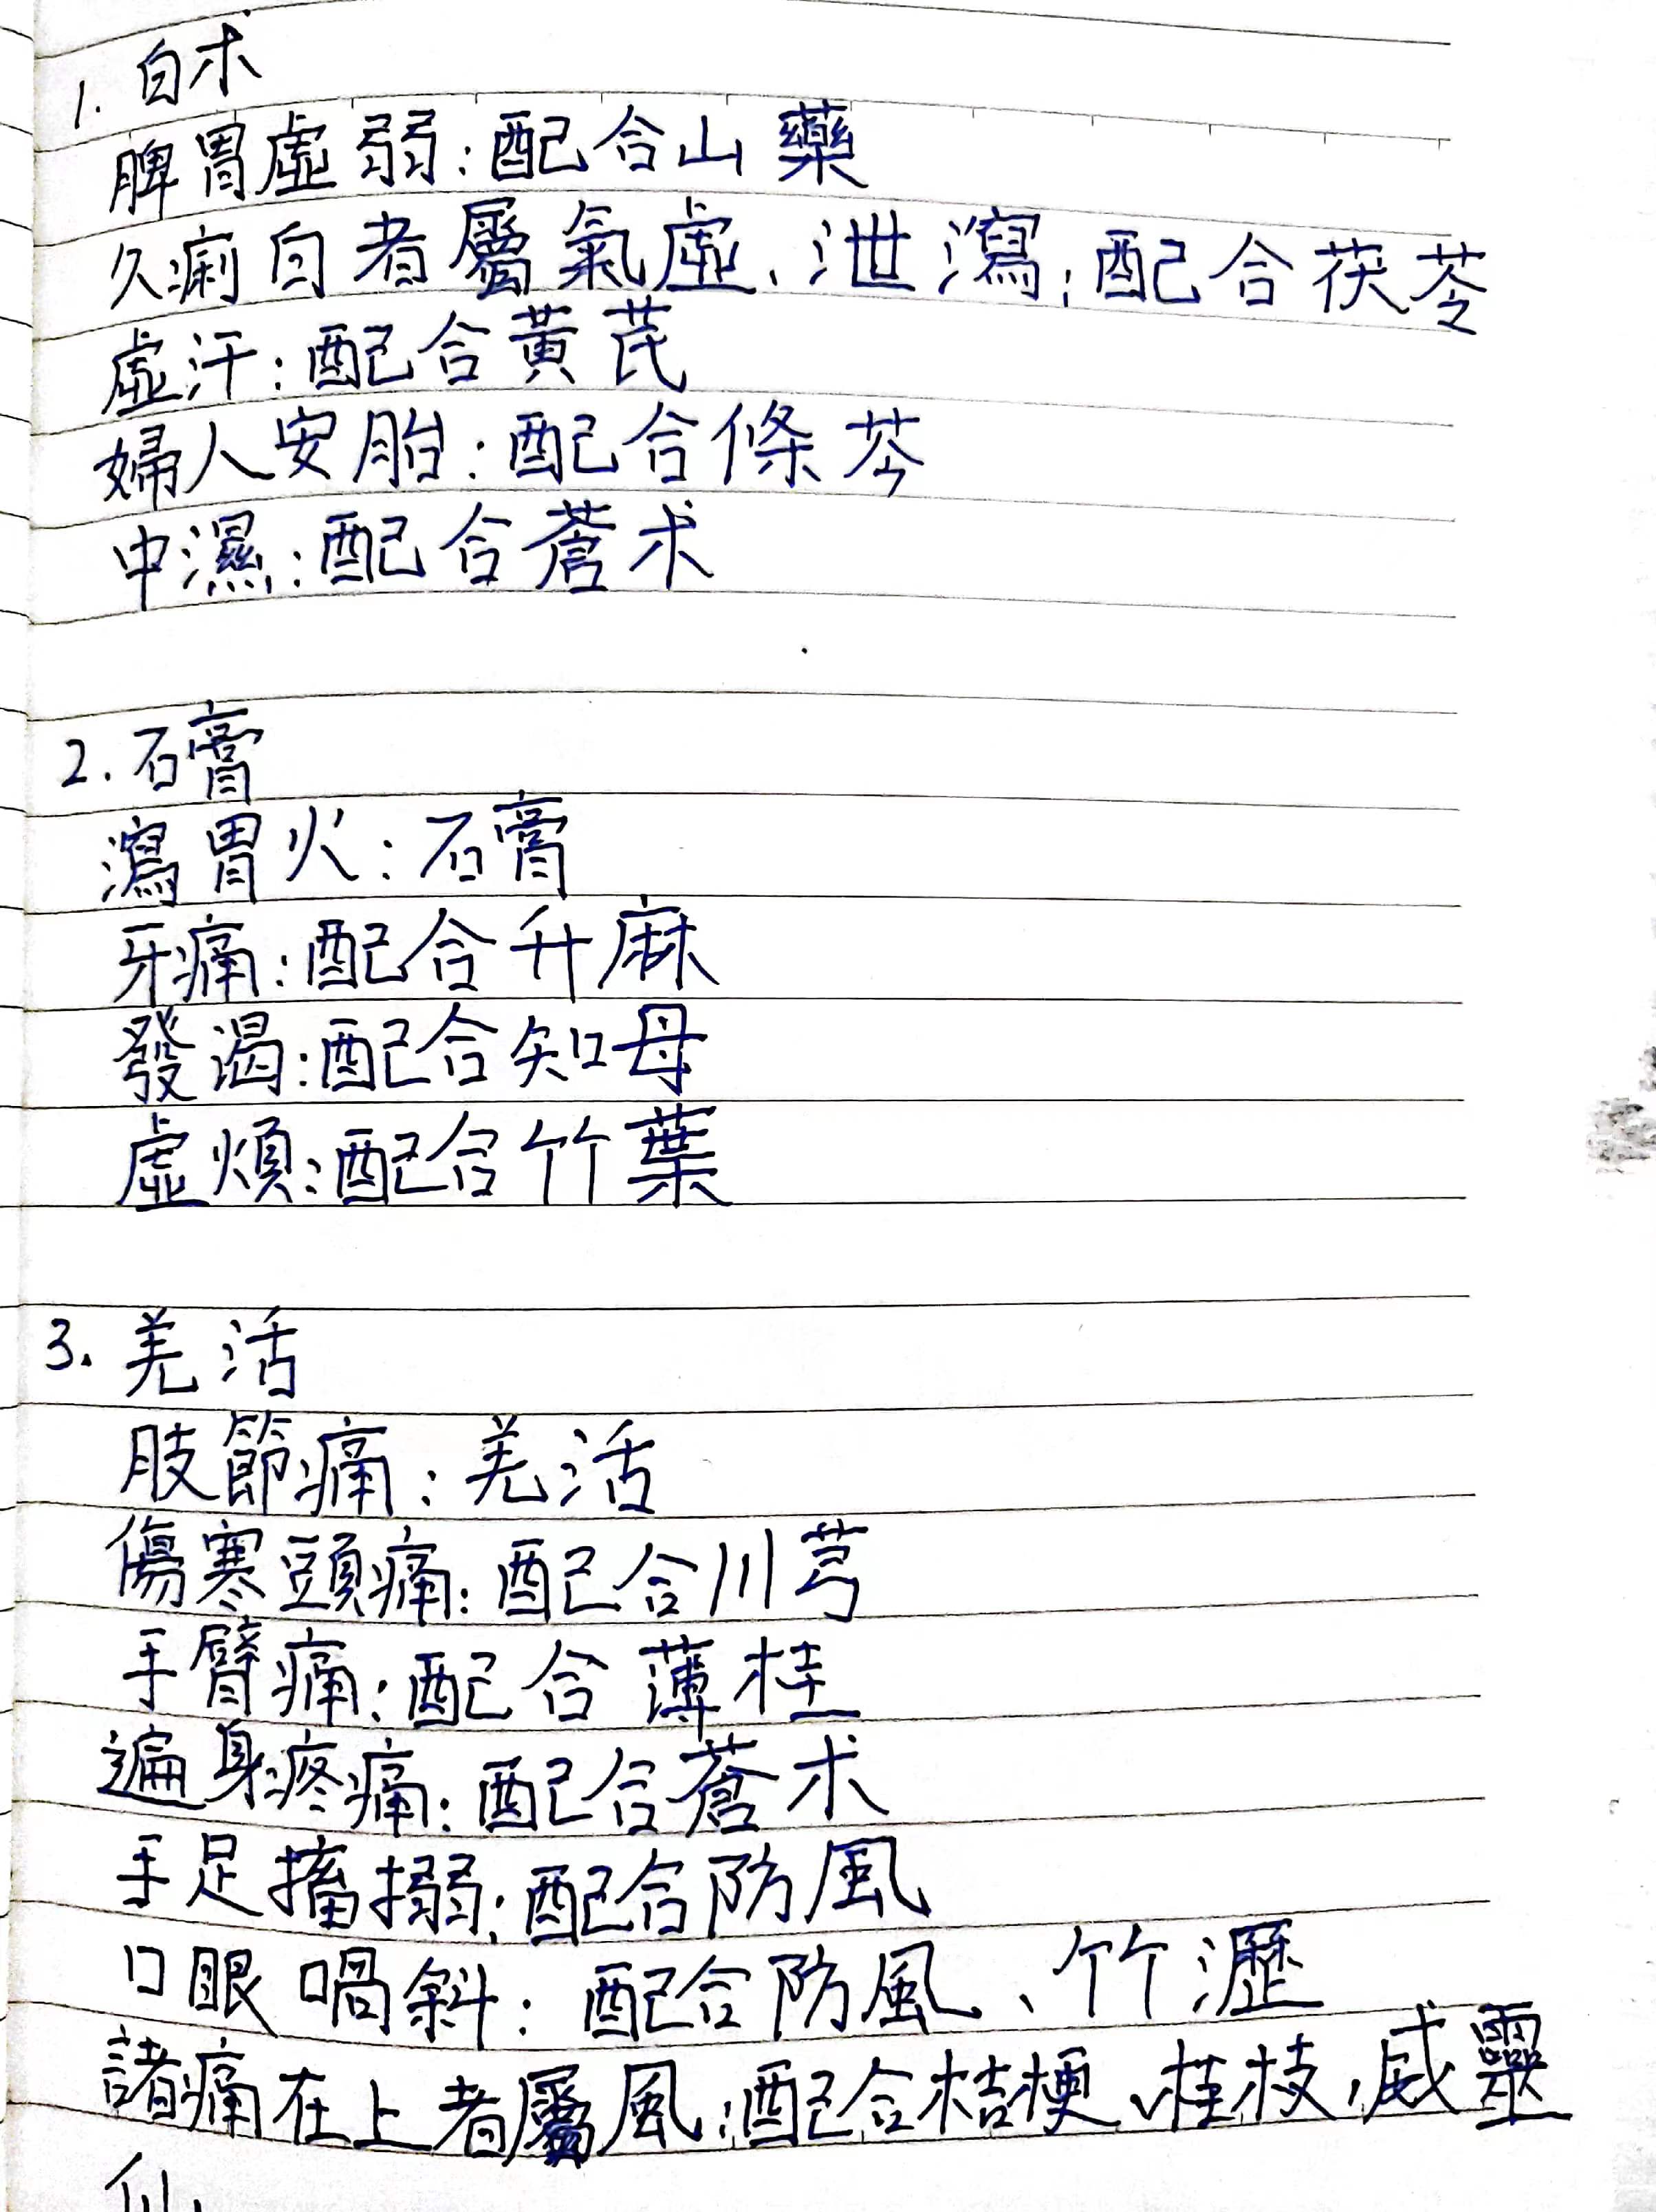 1. 白朮
脾胃虛弱:配合山藥
久痢白者屬氣虛、泄瀉:配合茯苓
虛汗:配合黃芪
婦人安胎:配合條芩
中濕:配合蒼朮
2. 石膏
瀉胃火:石膏
牙痛:配合升麻
發渴:配合知母
虛煩:配合竹葉
3. 羌活
肢節痛:羌活
傷寒頭痛:配合川芎
手臂痛:配合薄桂
遍身疼痛:配合蒼朮
手足搐搦:配合防風
口眼喎斜:配合防風、竹瀝
諸痛在上者屬風:配合桔梗、桂枝、威靈
仙